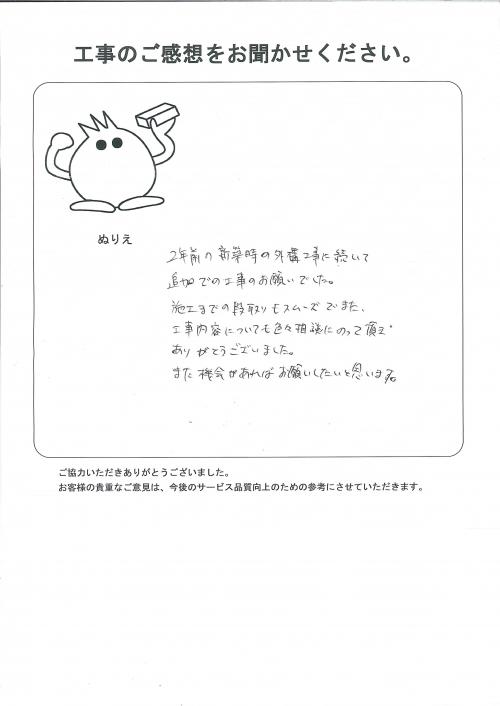 工事のご感想をお聞かせください。
ぬりえ
2年前の新築時の外構工事に続いて
追加での工事のお願いでした。
施工までの段取りもスムーズでまた、
工事内容についても色々相談にのって頂き
ありがとうございました。
また機会があればお願いしたいと思います。
ご協力いただきありがとうございました。
お客様の貴重なご意見は、今後のサービス品質向上のための参考にさせていただきます。